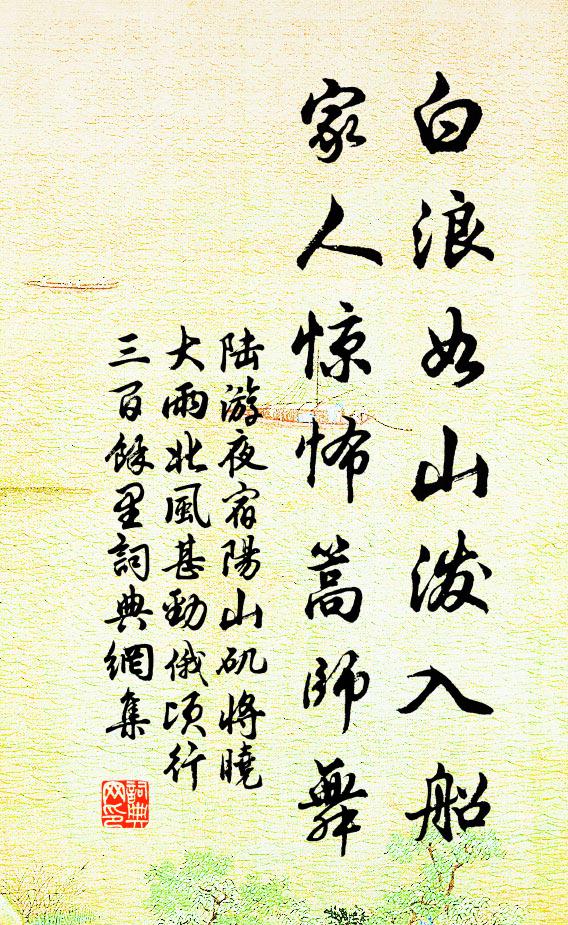 白浪如山泼入船
家人惊怖篙师舞
陆游夜宿陽山矶将曉
大雨北風甚勁俄頃行
三百餘里詞典網集
詞典
网印